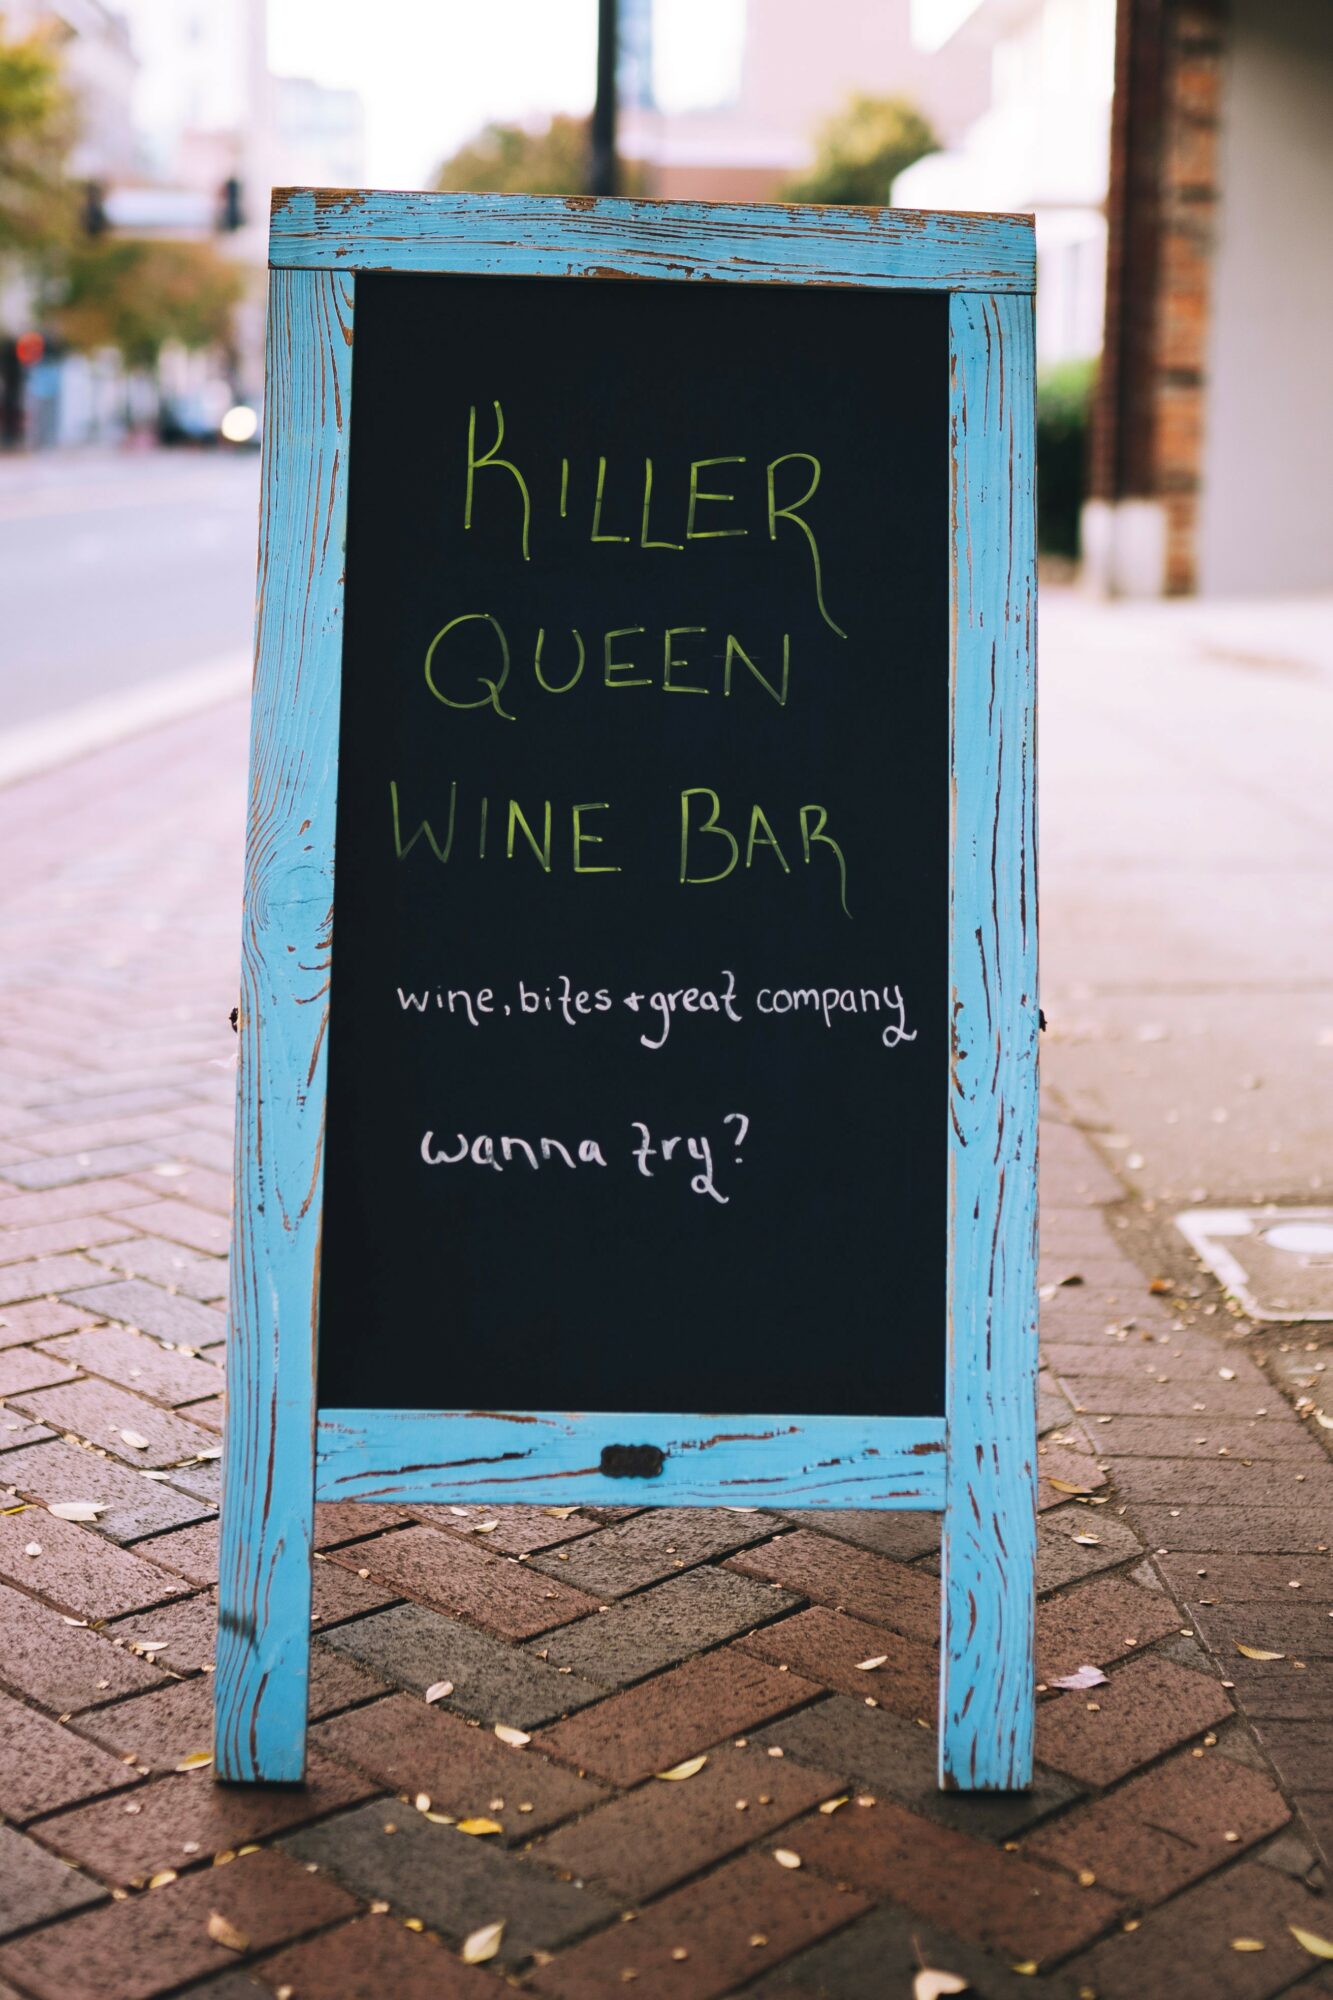 KILLER
QUEEN
WINE BAR
wine, bites + great company
wanna try?